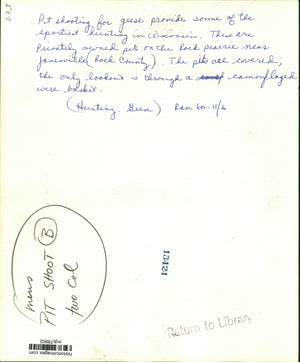 Pit shooting for geese provide some of the
sportiest hunting in Wisconsin. These are
Privately owned pits on the Rock prairie near
Janesville (Rock County). The pits are covered;
the only lookout is through a camouflaged
wire basket.
(Hunting, Geese) Ran 60-11/6
mens
PIT SHOOT (B)
two col
13421
Return to Library
historicimages.com